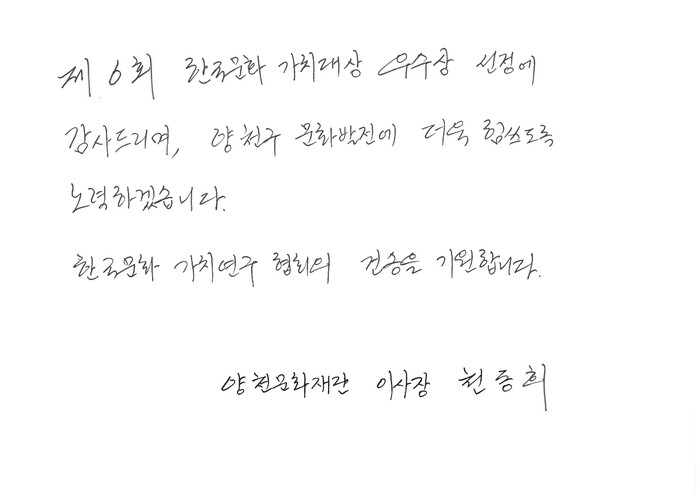 제 6회 한국문화 가치대상 우수상 선정에
감사드리며, 양천구 문화발전에 더욱 힘쓰도록
노력하겠습니다.
한국문화 가치연구 협회의 건승을 기원합니다.
양천문화재단 이사장 천동희